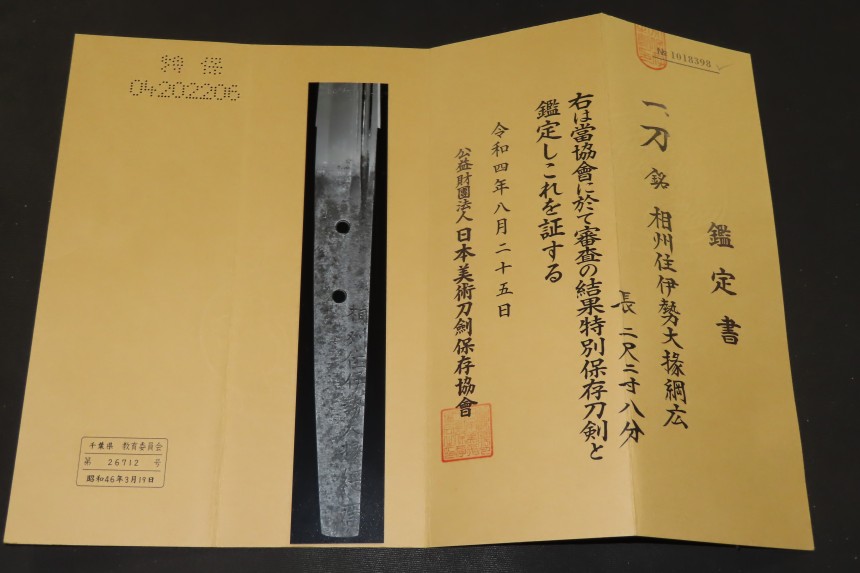 鑑定書
№ 1018398
一、刀 銘 相州住伊勢大掾綱広
長 二尺二寸八分
右は當協會に於て審査の結果特別保存刀剣と
鑑定しこれを証する
令和四年八月二十五日
公益財團法人 日本美術刀劍保存協會
相州住伊勢大掾綱廣
特保
04202206
千葉県 教育委員会
第 26712 号
昭和46年3月19日